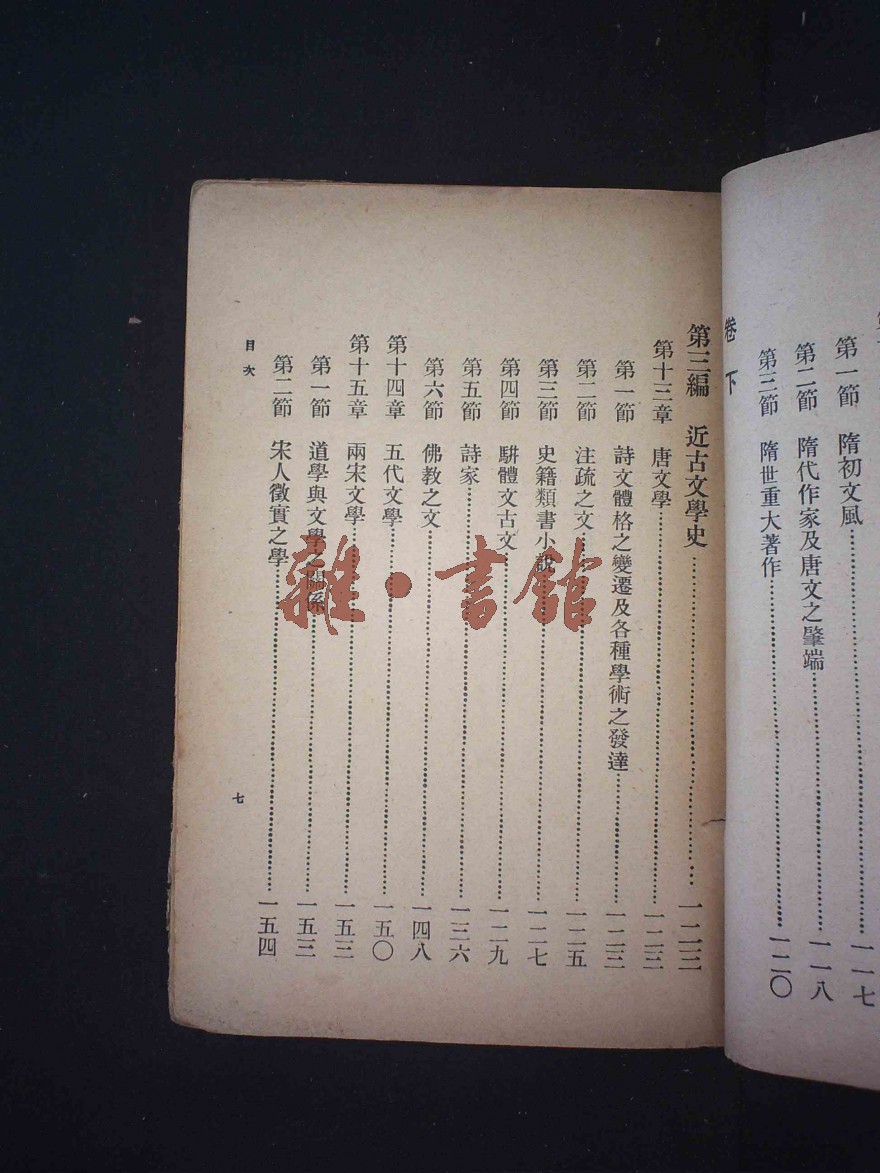 第一節 隋初文風 一一七
第二節 隋代作家及唐文之肇端 一一八
第三節 隋世重大著作 一二〇
卷下
第三編 近古文學史 一二三
第十三章 唐文學 一二三
第一節 詩文體格之變遷及各種學術之發達 一二三
第二節 注疏之文 一二五
第三節 史籍類書小說 一二七
第四節 駢體文古文 一二九
第五節 詩家 一三六
第六節 佛教之文 一四八
第十四章 五代文學 一五〇
第十五章 兩宋文學 一五三
第一節 道學與文學之關係 一五三
第二節 宋人徵實之學 一五四
目次
七
雜·書館